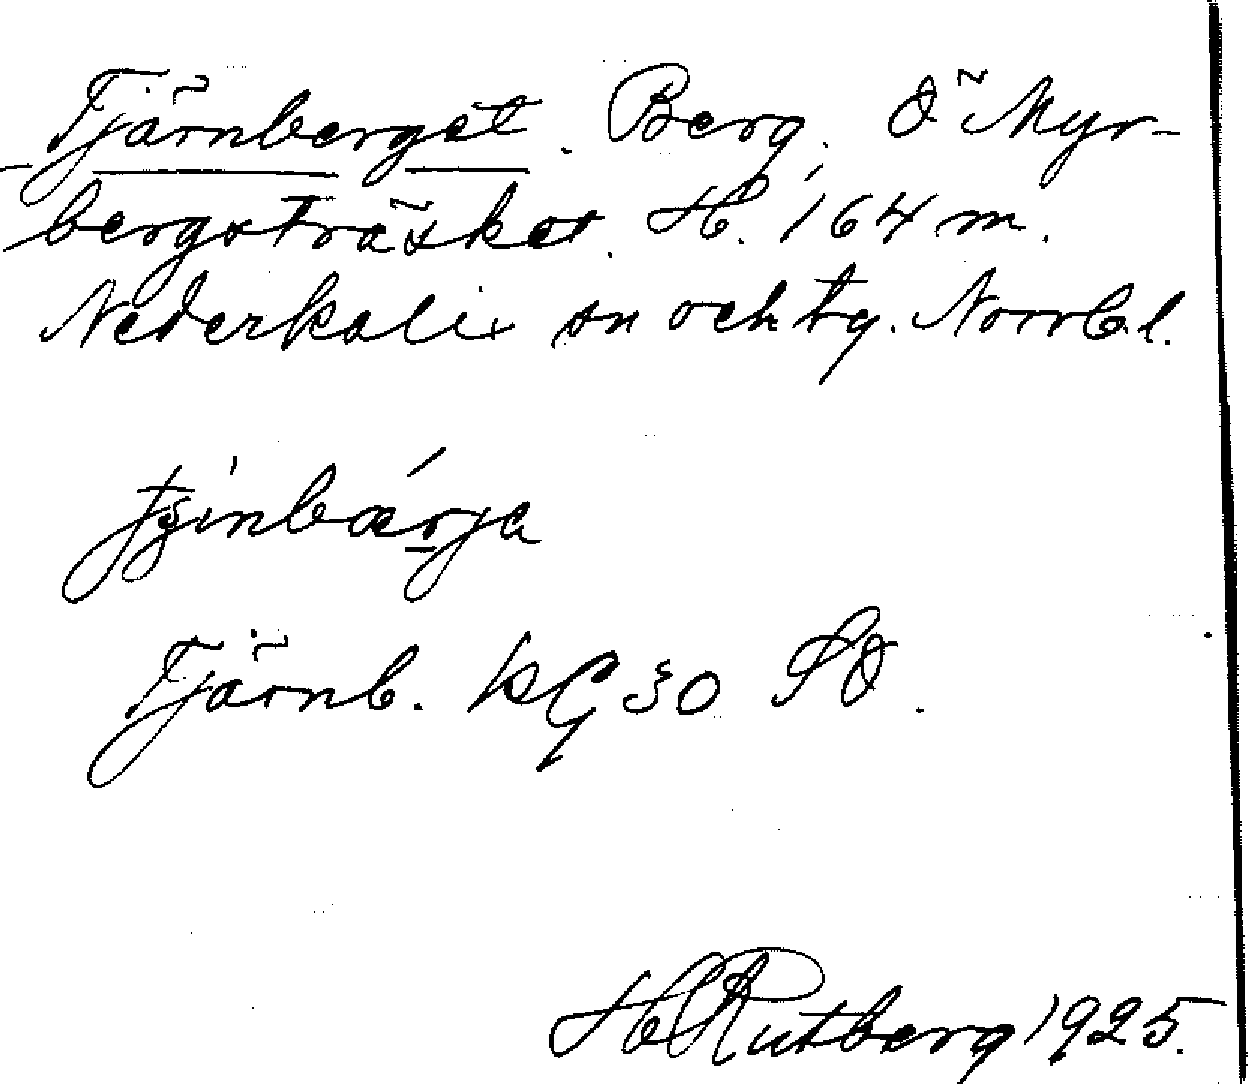 Tjärnberget. Berg. Ö Myr-
bergsträsket. H. 164 m.
Nederkalix sn och tg. Norrb. l.
Tjärnb. KG 30 SÖ.
H Rutberg 1925.